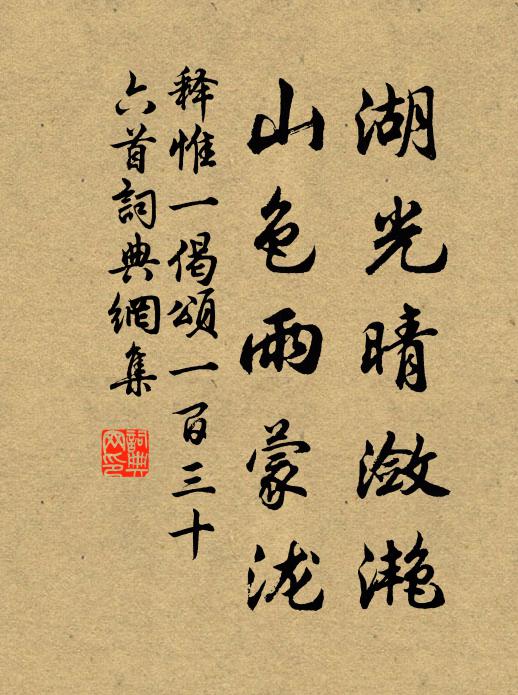 湖光晴瀲灎
山色雨蒙泷
释惟一偈頌一百三十
六首詞典網集
詞典
网印